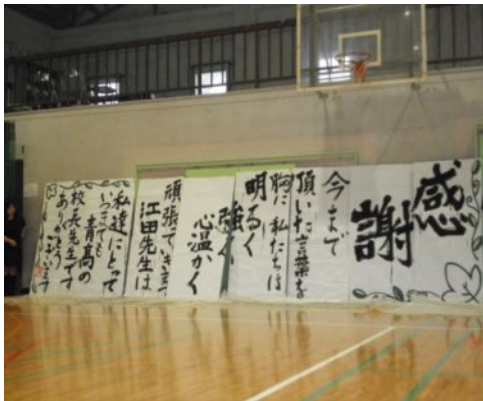 感謝
今まで
頂いた言葉を
胸に私たちは
明るく
強く
心温かく
頑張っていきます
江田先生は
私達にとって
いつまでも
青高の
校長先生です
ありがとうございます